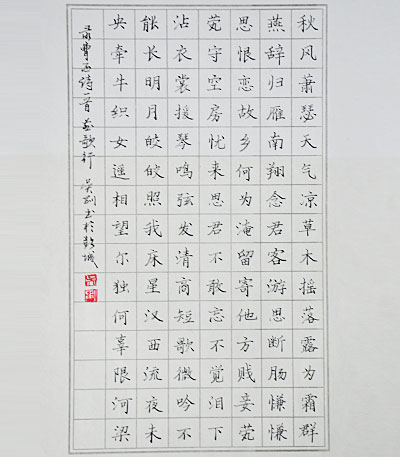 秋风萧瑟天气凉草木摇落露为霜群
燕辞归雁南翔念君客游思断肠慊慊
思恨恋故乡何为淹留寄他方贱妾茕
茕守空房忧来思君不敢忘不觉泪下
沾衣裳援琴鸣弦发清商短歌微吟不
能长明月皎皎照我床星汉西流夜未
央牵牛织女遥相望尔独何辜限河梁
录曹丕诗一首燕歌行 吴